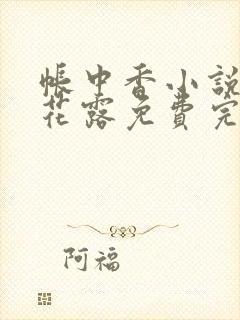 帳中香小說
花露免費完
阿福